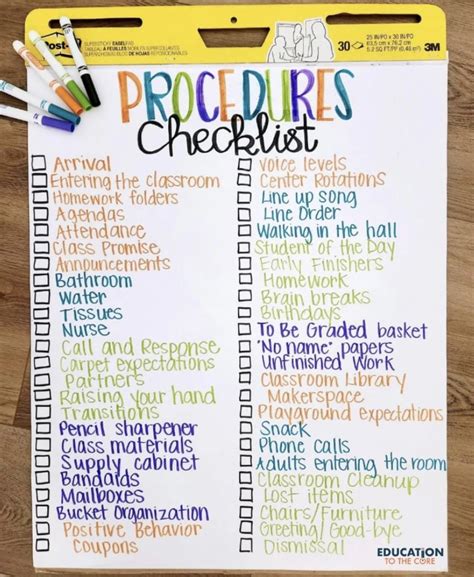 Post-it
SUPERSTICKY EASEL PAD
30
25 IN X 30 IN/PO
63.5 cm x 76.2 cm
3M
PROCEDURES
Checklist
Arrival
Entering the classroom
Homework folders
Agendas
Attendance
Class Promise
Announcements
Bathroom
Water
Tissues
Nurse
Call and Response
Carpet expectations
Partners
Raising your hand
Transitions
Pencil sharpener
Class materials
Supply cabinet
Bandaids
Mailboxes
Bucket Organization
Positive Behavior
Coupons
Voice levels
Center Rotations
Line up song
Line Order
Walking in the hall
Student of the Day
Early Finishers
Homework
Brain breaks
Birthdays
To Be Graded basket
"No name" papers
Unfinished Work
Classroom Library
Makerspace
Playground expectations
Snack
Phone Calls
Adults entering the room
Classroom Cleanup
Lost items
Chairs/Furniture
Greeting/Good-bye
Dismissal
EDUCATION
TO THE CORE